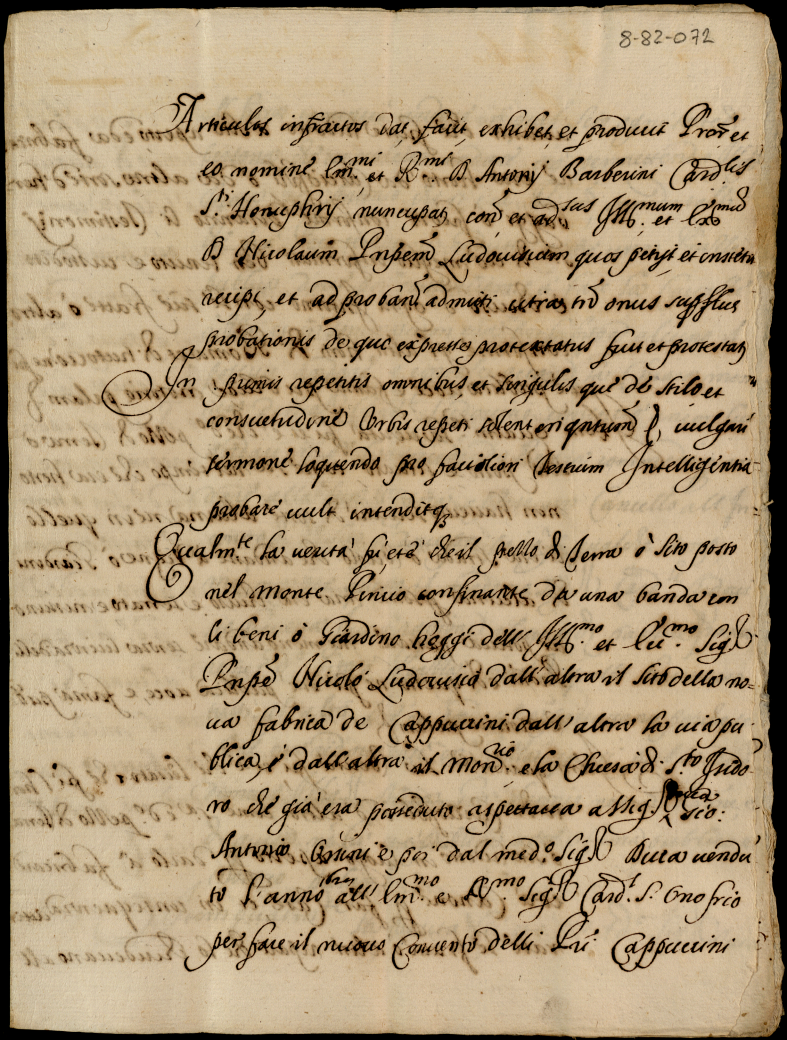 8-82-072
Articulos infrattos dat, facit, exhibet, et producit Procr̃ et
eo nomine Em.mi et R.mi D Antonij Barberini Card.lis
S.ti Honuphrij nuncupat, con̄ et ad.sus Ill.mum et Ex.mum
D Nicolaum Pnpem̄ Ludovisium quos petijt et
recipi, et ad proband̄ admitti citra tn̄ onus
probationis de quo expresse protestatus fuit et protestat
In primis repetitis omnibus, et singulis que de stilo et
consuetudine Urbis repeti solent vulgari
sermone loquendo pro faciliori Testium Intelligentia
probare vult intenditq
Qualm.te la verità fu et è che il pezzo di Terra ò sito posto
nel monte Pincio confinante da una banda con
li beni ò Giardino heggi dell Ill.mo et Ecc.mo Sig.r
Pnpe Nicolò Ludovisio dall altra il sito della no=
va fabrica de Cappuccini dall altra la via pu
blica, è dall altra il Mon.rio e la Chiesa di S.to Isido
ro che già era posseduto a spettava a Sig.r Duca Gio:
Antonio Orsini è poi dal med.o Sig.r Duca vendu
to l'anno all' Em.mo e R.mo Sig.r Card.l S. Onofrio
per fare il nuovo Convento delli Pri Cappuccini